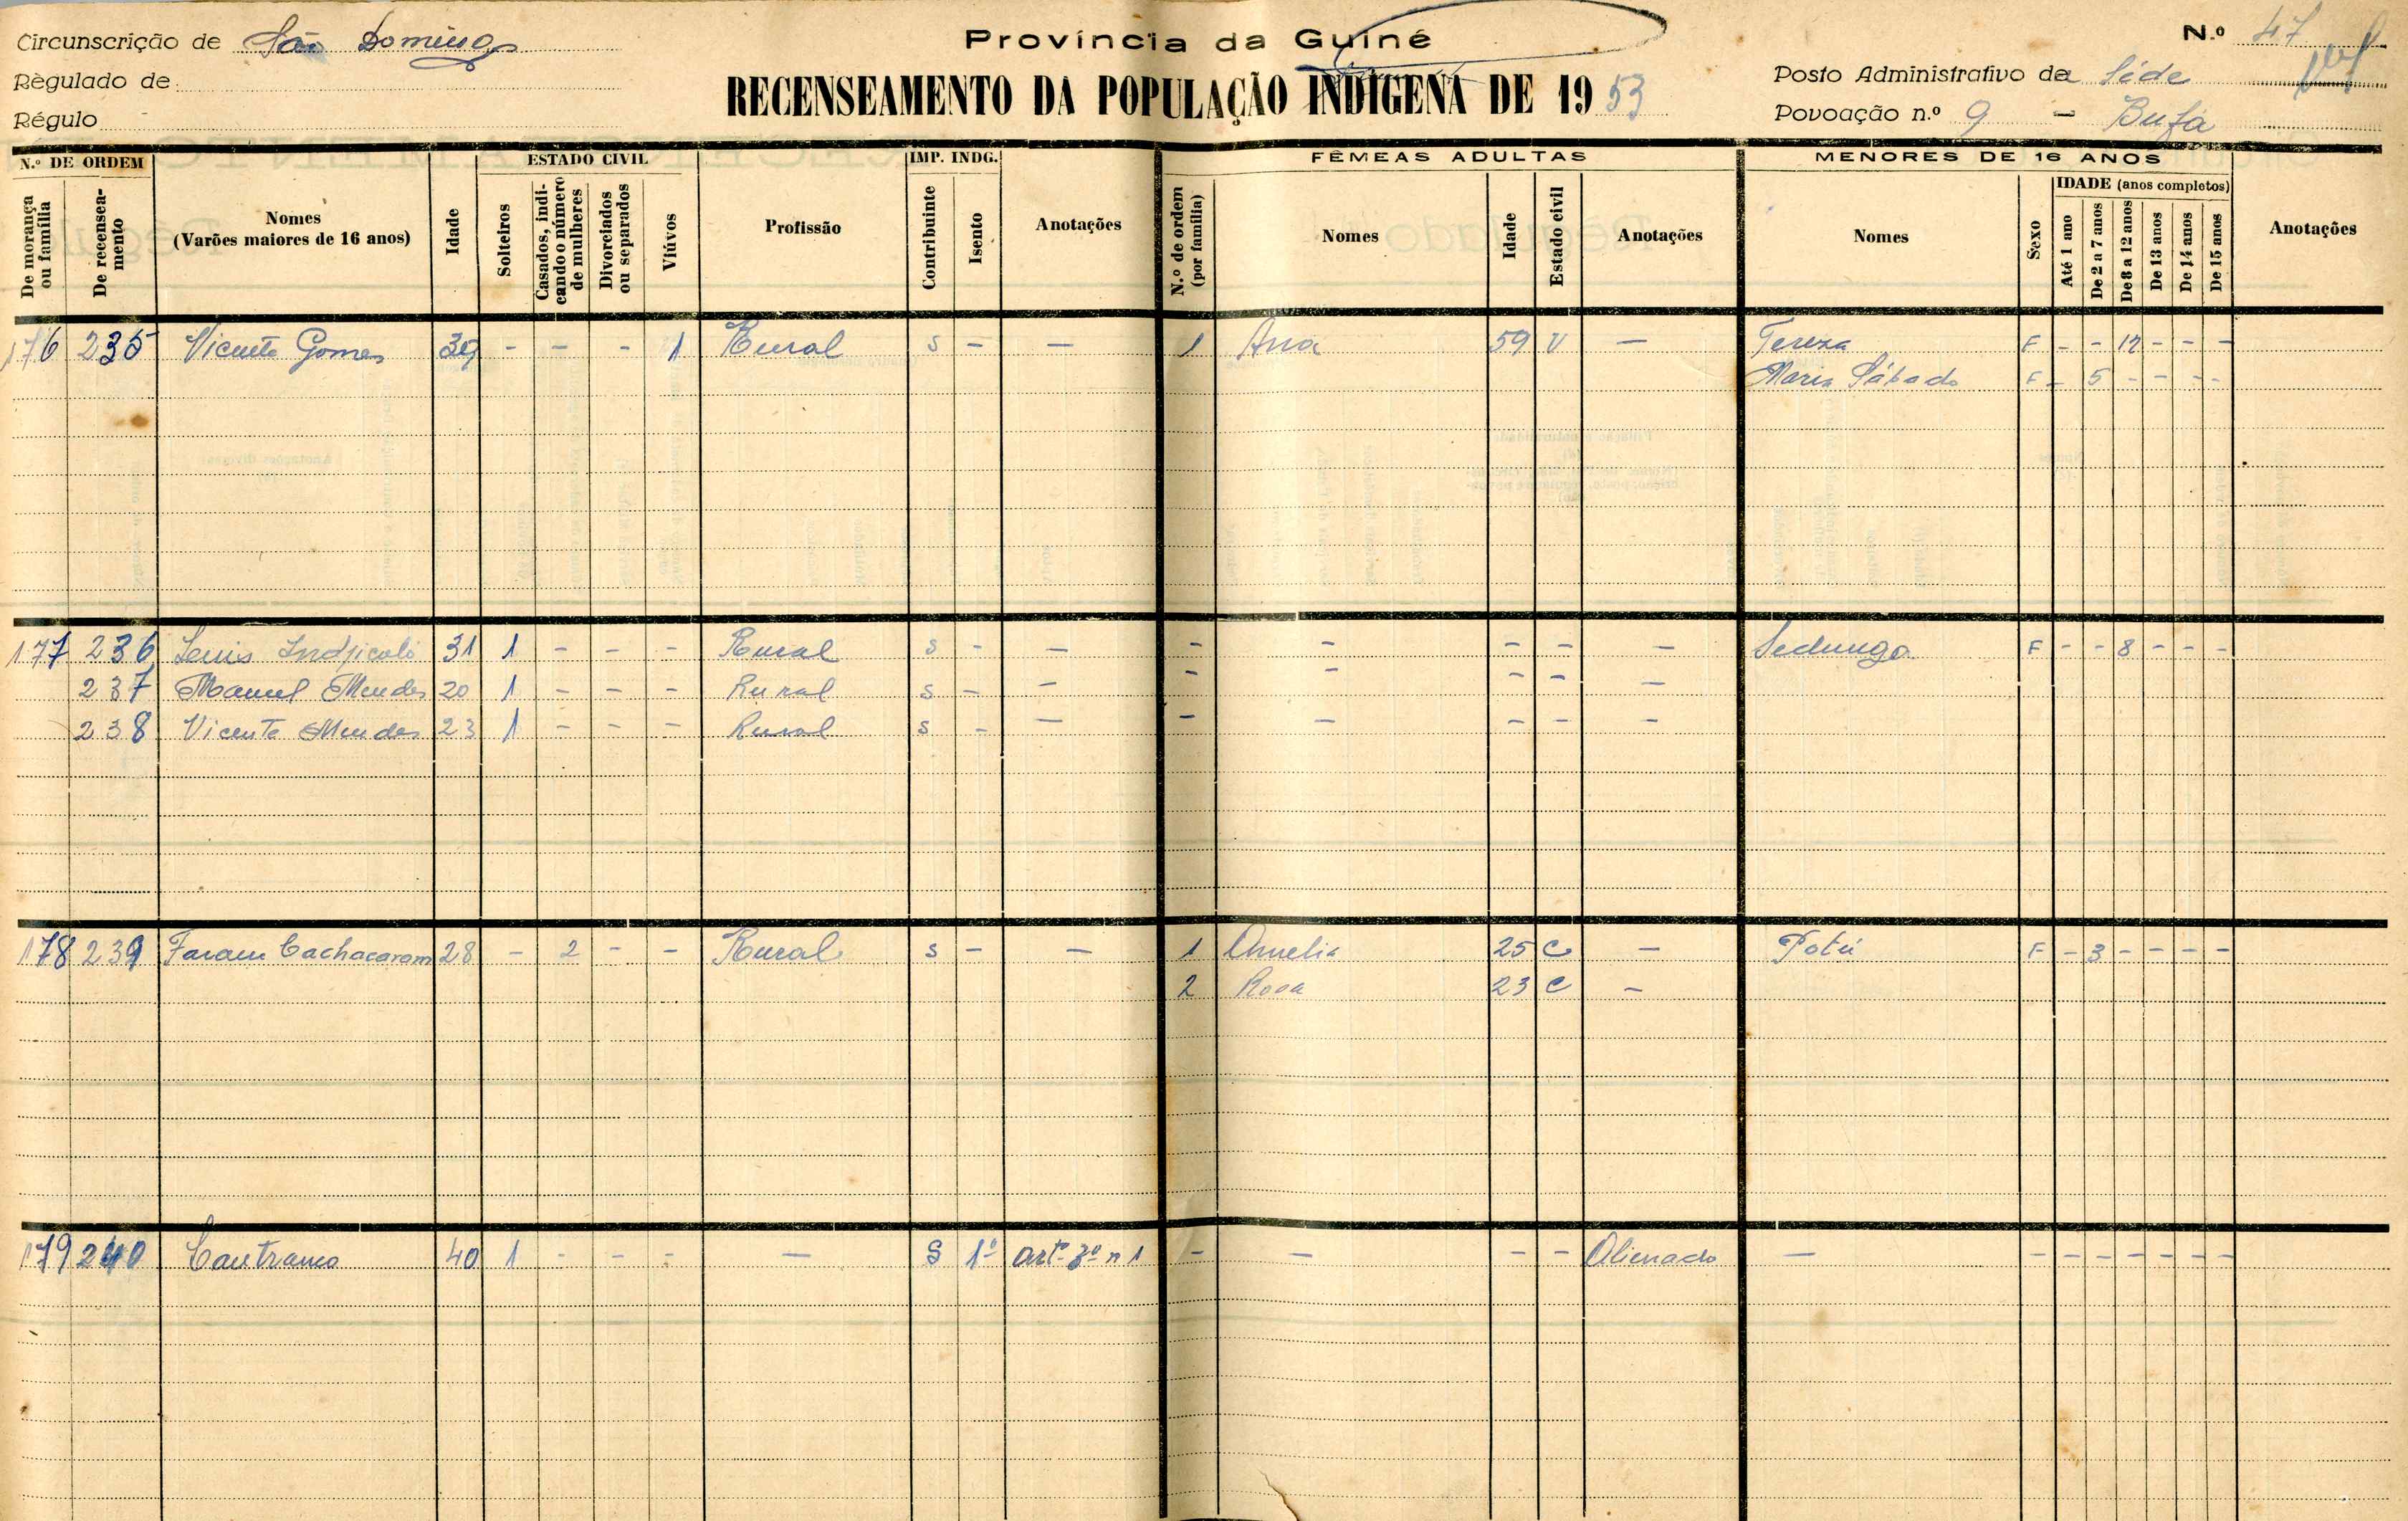 Circunscrição de São Domingos
Província da Guiné
N.º 47
Règulado de
RECENSEAMENTO DA POPULAÇÃO INDÍGENA DE 1953
Posto Administrativo da Séde
Régulo
Povoação n.º 9 - Bufa
N.º DE ORDEM
ESTADO CIVIL
IMP. INDG.
FÊMEAS ADULTAS
MENORES DE 16 ANOS
De morança ou família
De recenseamento
Nomes
(Varões maiores de 16 anos)
Idade
Solteiros
Casados, indicando o número de mulheres
Divorciados ou separados
Viúvos
Profissão
Contribuinte
Isento
Anotações
N.º de ordem (por família)
Nomes
Idade
Estado civil
Anotações
Nomes
Sexo
IDADE (anos completos)
Até 1 ano
De 2 a 7 anos
De 8 a 12 anos
De 13 anos
De 14 anos
De 15 anos
Anotações
176 235 Vicente Gomes 39 - - - 1 Rural S - - 1 Ana 59 V - Tereza F - - 12 - - -
Maria Sábado F - 5 - - - -
177 236 Luis Indjicoli 31 1 - - - Rural S - - - - - - - Sedunga F - - 8 - - -
237 Manuel Mendes 20 1 - - - Rural S - - - - - - -
238 Vicente Mendes 23 1 - - - Rural S - - - - - - -
178 239 Faram Cachacaram 28 - 2 - - Rural S - - 1 Amelia 25 C - Potú F - 3 - - - -
2 Rosa 23 C -
179 240 40 1 - - - - S 1º artº 3º n 1 - - - - Alienado - - - - - - - -